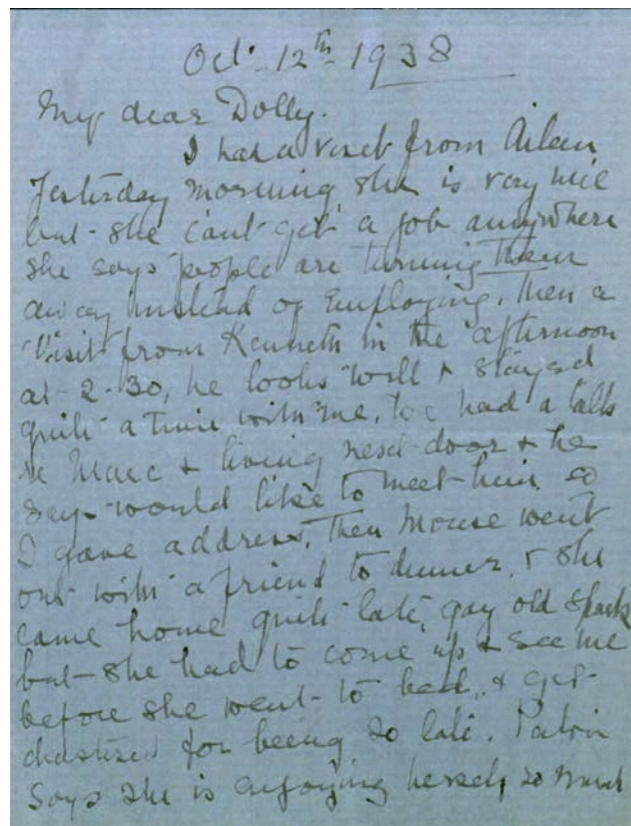 Oct. 12th 1938
My dear Dolly.
I had a visit from Aileen
Yesterday morning, she is very nice
but she can't get a job anywhere
she says people are turning them
away instead of Employing. Then a
Visit from Kenneth in the afternoon
at 2-30, he looks well & stayed
quite a time with me, we had a talk
re Marc & living next-door & he
says would like to meet him so
I gave address, Then Mouse went
out with a friend to dinner, & she
came home quite late, gay old spark
but she had to come up & see me
before she went to bed, & get
chastised for being so late.
says she is enjoying herself so much